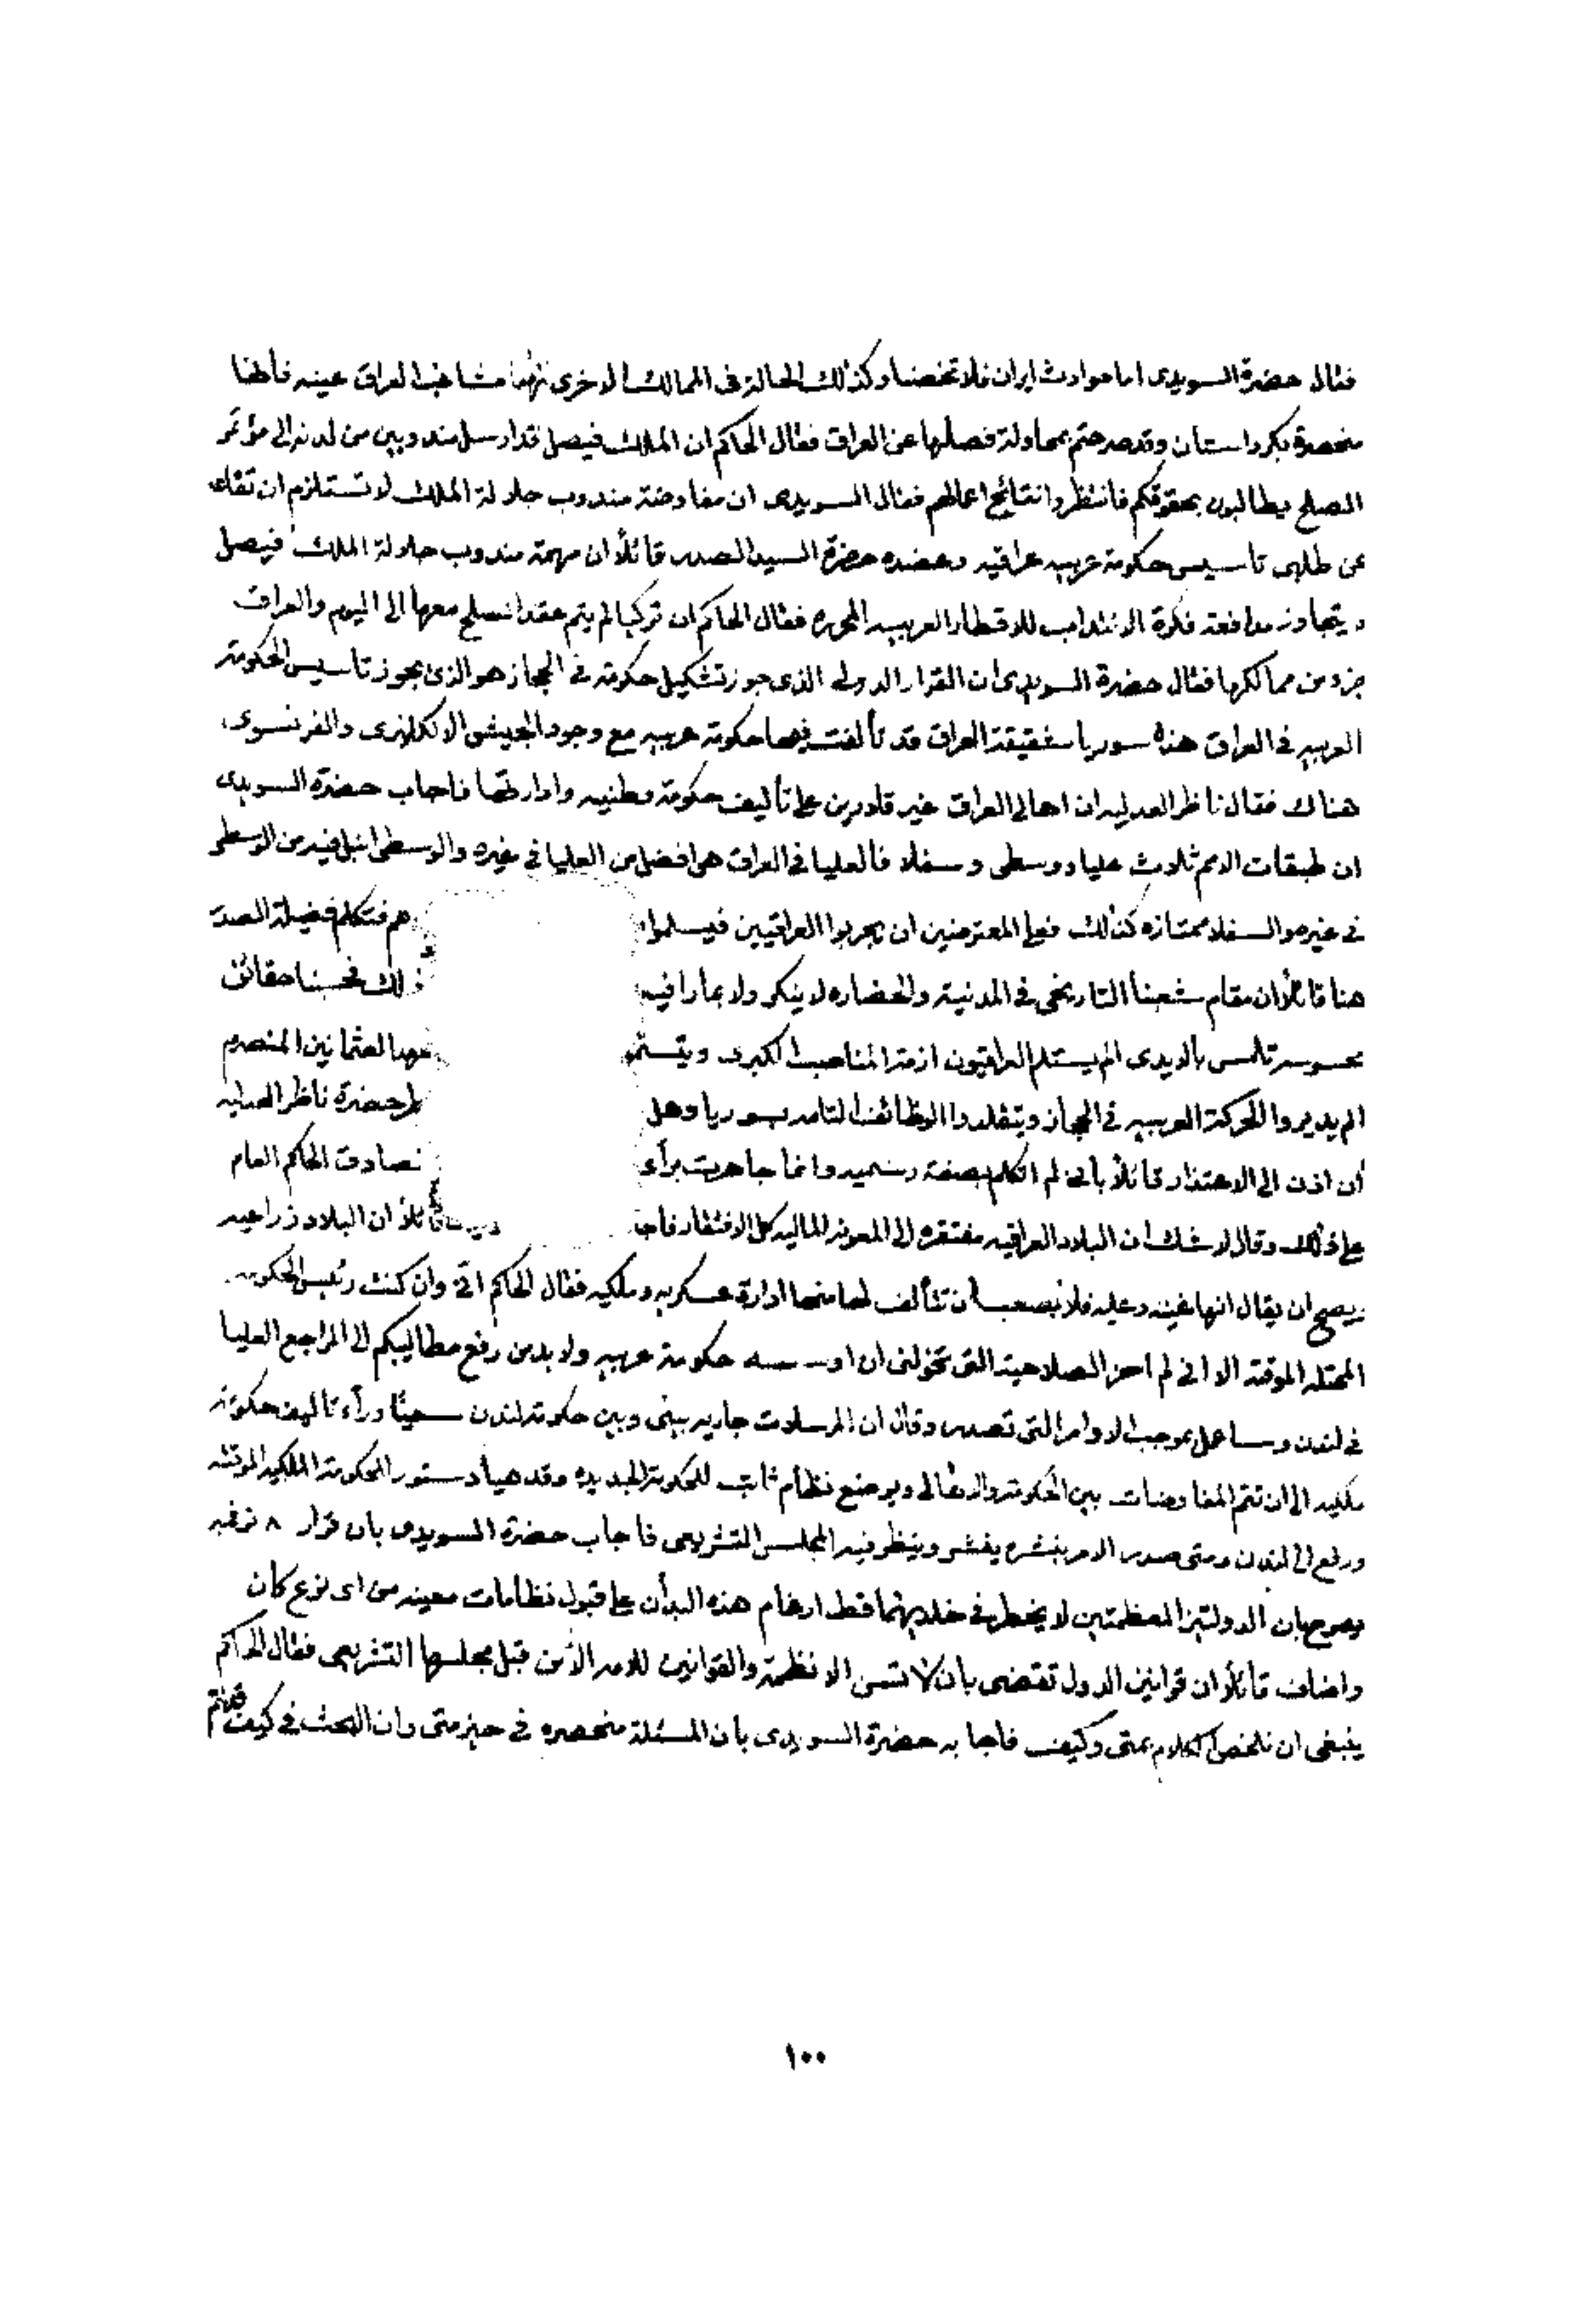 فقال حضرة السويدى اما حوادث ايران فلا تخصنا وكذلك الحالة فى الممالك الاخرى اما مشاغب العراق عينه فاظنها
منحصرة بكردستان وقد صرحتم بمحاولة فصلها عن العراق فقال الحاكم ان الملك فيصل قد ارسل مندوبين من لدنه الى مؤتمر
الصلح يطالبون بحقوقكم فانتظروا نتائج اعمالهم فقال السويدى ان مفاوضة مندوب جلالة الملك لا تستلزم ان نتقاعد
عن طلب تاسيس حكومة عربيه عراقيه وعضده حضرة السيد الصدر قائلاً ان مهمة مندوب جلالة الملك فيصل
لا يتجاوز مدافعة فكرة الانتداب للاقطار العربيه المحرره فقال الحاكم ان تركيا لم يتم عقد الصلح معها الى اليوم والعراق
جزء من ممالكها فقال حضرة السويدى ان القرار الدولى الذى جوز تشكيل حكومة فى الحجاز هو الذى يجوز تاسيس الحكومة
العربيه فى العراق هذه سوريا شقيقة العراق قد تألفت فيها حكومة عربيه مع وجود الجيش الانكليزى والفرنسوى
هناك فقال ناظر العدليه ان اهالى العراق غير قادرين على تأليف حكومة وطنيه وادارتها فاجاب حضرة السويدى
ان طبقات الامم ثلاث عليا ووسطى وسفلا فالعليا فى العراق هى افضل من العليا فى غيره والوسطى انبل فيه من الوسطى
فى غيره والسفلا ممتازه كذلك فعلى المعترضين ان يجربوا العراقيين فيسلموا هم فتكلم فضيلة الصدر
هنا قائلاً ان مقام شعبنا التاريخى فى المدنية والحضاره لا ينكر ولا يمارا فيه ذلك فحسبنا حقائق
محسوسة تلمس بالايدى الم يستلم العراقيون ازمة المناصب الكبرى عهد العثمانين المنصرم
الم يديروا الحركة العربيه فى الحجاز ويتقلدوا الوظائف التامه بسوريا وهل حضرة ناظر العدليه
أن اذن الى الاعتذار قائلاً بانى لم اتكلم بصفة رسميه وانما جاهرت برأى فصادق الحاكم العام
على ذلك وقال لا شك ان البلاد العراقيه مفتقره الى المعونه الماليه كل الافتقار فاجا قائلاً ان البلاد زراعيه
ويصح ان يقال انها غنيه وعليه فلا يصعب أن تتألف لها منها ادارة عسكريه وملكيه فقال الحاكم انى وان كنت رئيس الحكومه
المحتله الموقتة الا انى لم احز الصلاحية التى تخولنى ان اوسسه حكومة عربيه ولا بد من رفع مطاليبكم الى المراجع العليا
فى لندن وساعمل بموجب الاوامر التى تصدر وقال ان المرسلات جاريه بينى وبين حكومة لندن سعياً وراء تاليف حكومة
ملكيه الى ان تتم المفاوضات بين الحكومة والاهالى ويوضع نظام ثابت للحكومة الجديده وقد هيأ دستور الحكومة الملكيه الموقته
ورفع الى لندن ومتى صدر الامر بنشره يفشر وينظر فيه المجلس التشريعى فاجاب حضرة السويدى بان قرار ٨ نوفمبر
يصرح بان الدولتين المعظمتين لا يخطر فى خلديهما قط ارغام هذه البلدان على قبول نظامات معينه من اى نوع كان
واضاف قائلاً ان قوانين الدول تقضى بان لا تسن الانظمة والقوانين للامه الا من قبل مجلسها التشريعى فقال الحاكم
ينبغى ان نلخص الكلام بمتى وكيف فاجابه حضرة السويدى بان المسئلة منحصره فى حيز متى وان البحث فى كيف
١٠٠